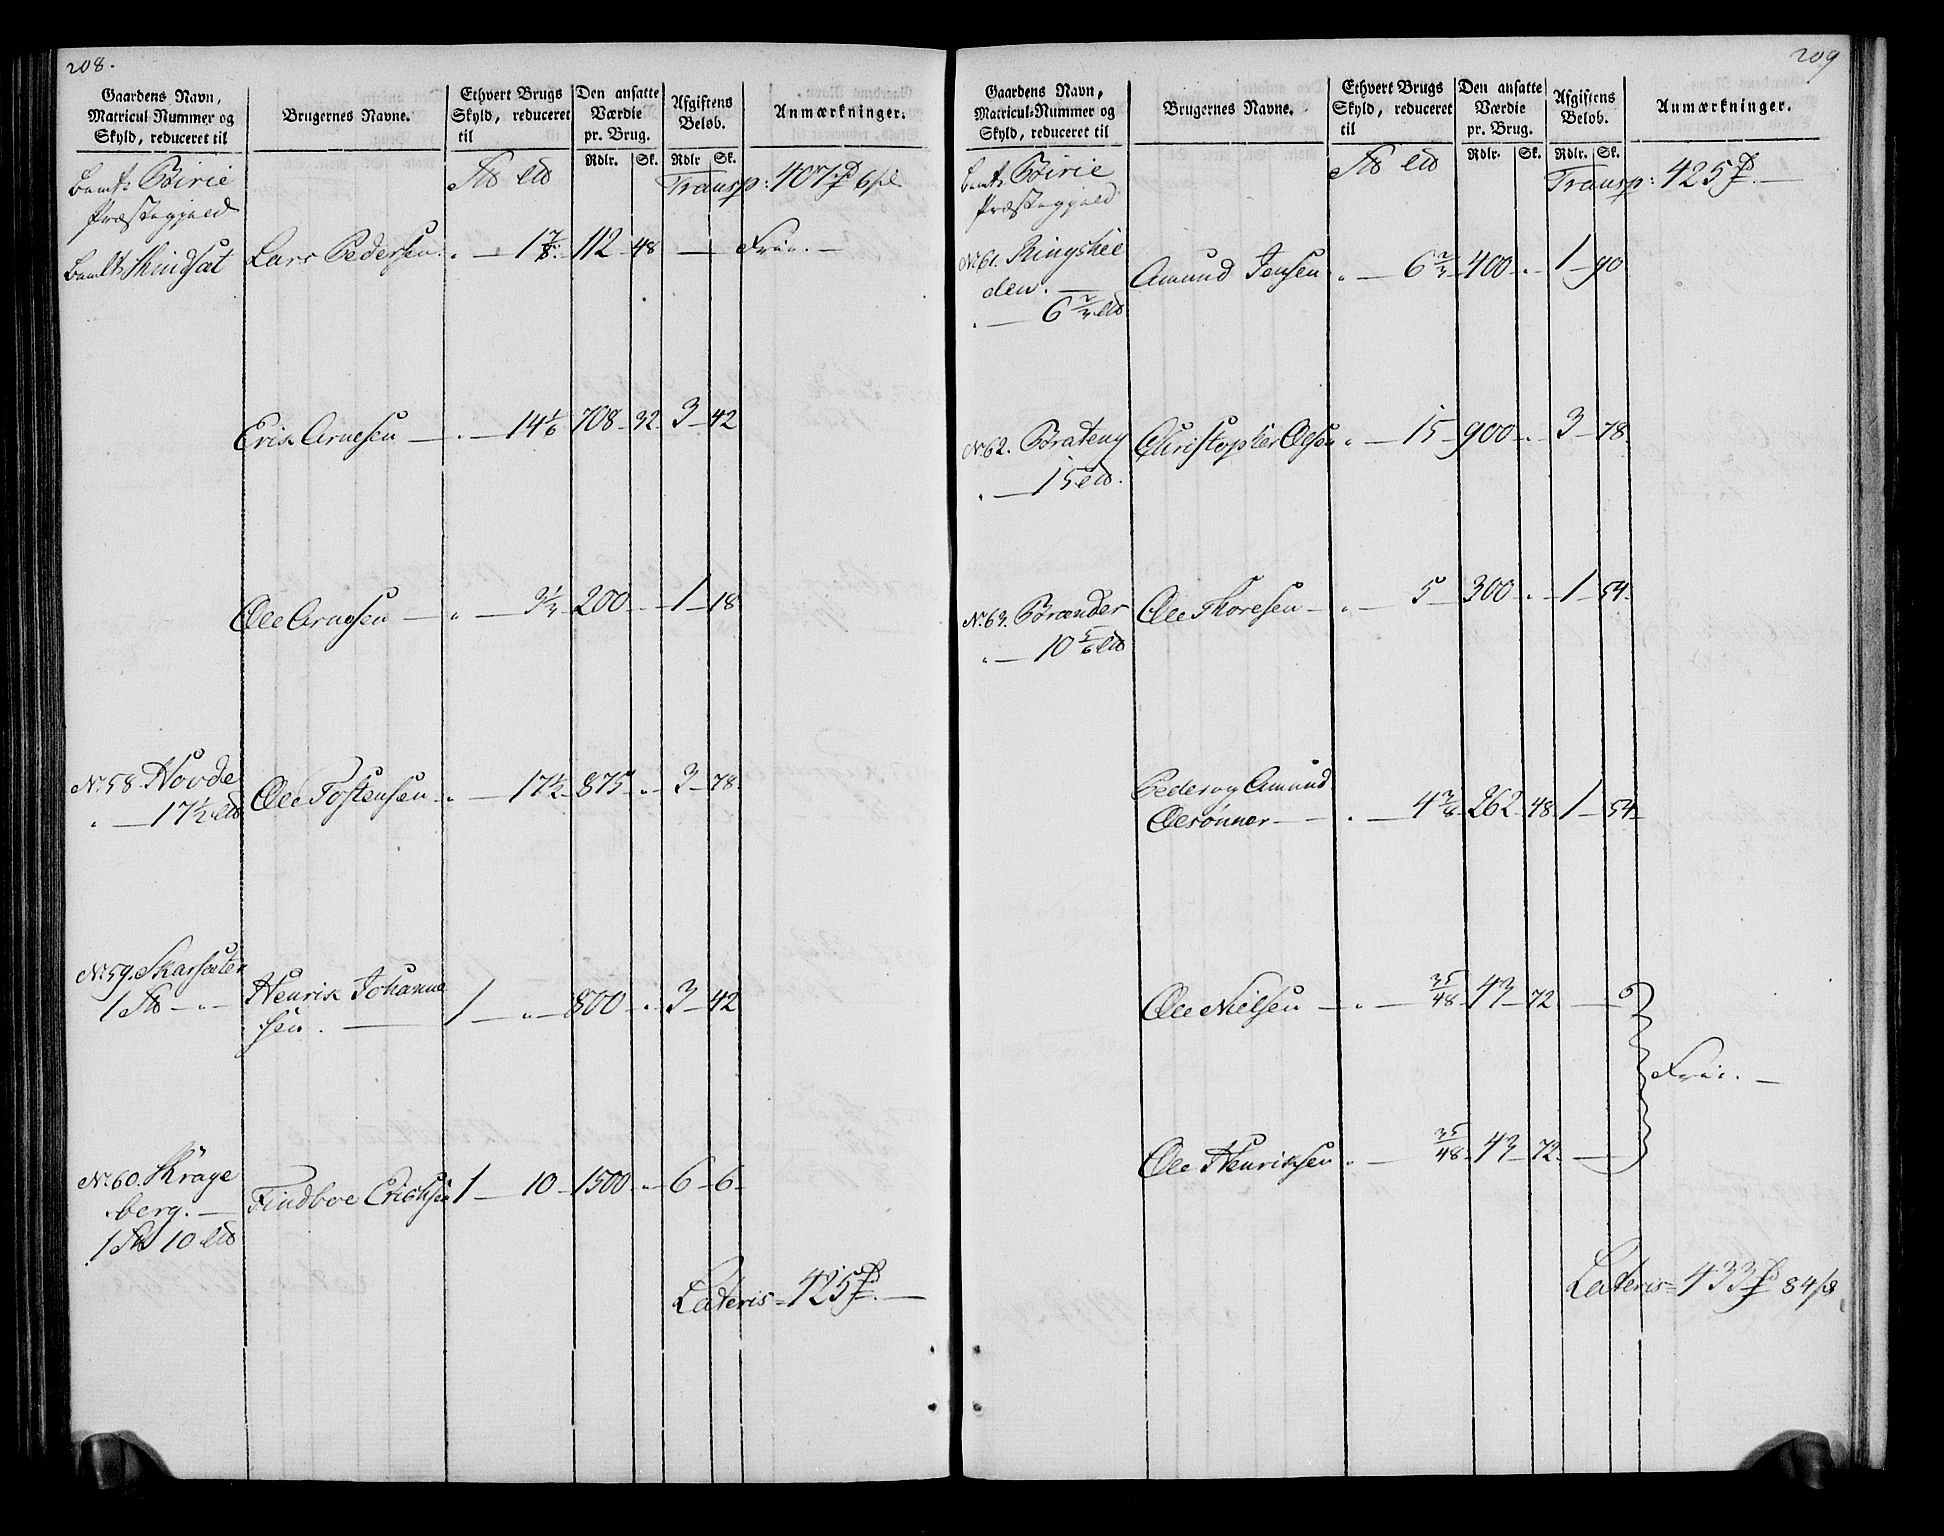 208.
Gaardens Navn, Matricul-Nummer og Skyld, reduceret til
Brugernes Navne.
Ethvert Brugs Skyld, reduceret til
Den ansatte Værdie pr. Brug.
Afgiftens Beløb.
Anmærkninger.
Rdlr. Sk. Rdlr Sk.
Birie
Præstegjeld
Transp: 407 6
Lars Pedersen 1 7/8 112 48 — Frie.
Erik Arnesen 14 1/6 708 32 3 42
Ole Arnesen 3 1/3 200 1 18
No 58. Hovde
17 1/2
Ole Tostensen 17 1/2 875 3 78
No 59. Skarsæter
1
Henrik Johanne
sen. 1 800 3 42
No 60. Skrage
berg.
1 10
Findboe Ericksen 1 10 1500 6 6
Lateris = 425
209
Gaardens Navn, Matricul-Nummer og Skyld, reduceret til
Brugernes Navne.
Ethvert Brugs Skyld, reduceret til
Den ansatte Værdie pr. Brug.
Afgiftens Beløb.
Anmærkninger.
Rdlr. Sk. Rdlr. Sk.
Birie
Præstegjeld
Transp: 425
No 61. Ringshei
den.
6 2/3
Amund Jensen 6 2/3 400 1 90
No 62. Brateng
15
Christopher Olsen 15 900 3 78
No 63. Brænder
10 5/6
Ole Thoresen 5 300 1 54
Peder og Amund
Olesønner 4 3/8 262 48 1 54
Ole Nielsen 35/48 43 72
Frie.
Ole Henriksen 35/48 43 72
Lateris = 433 84